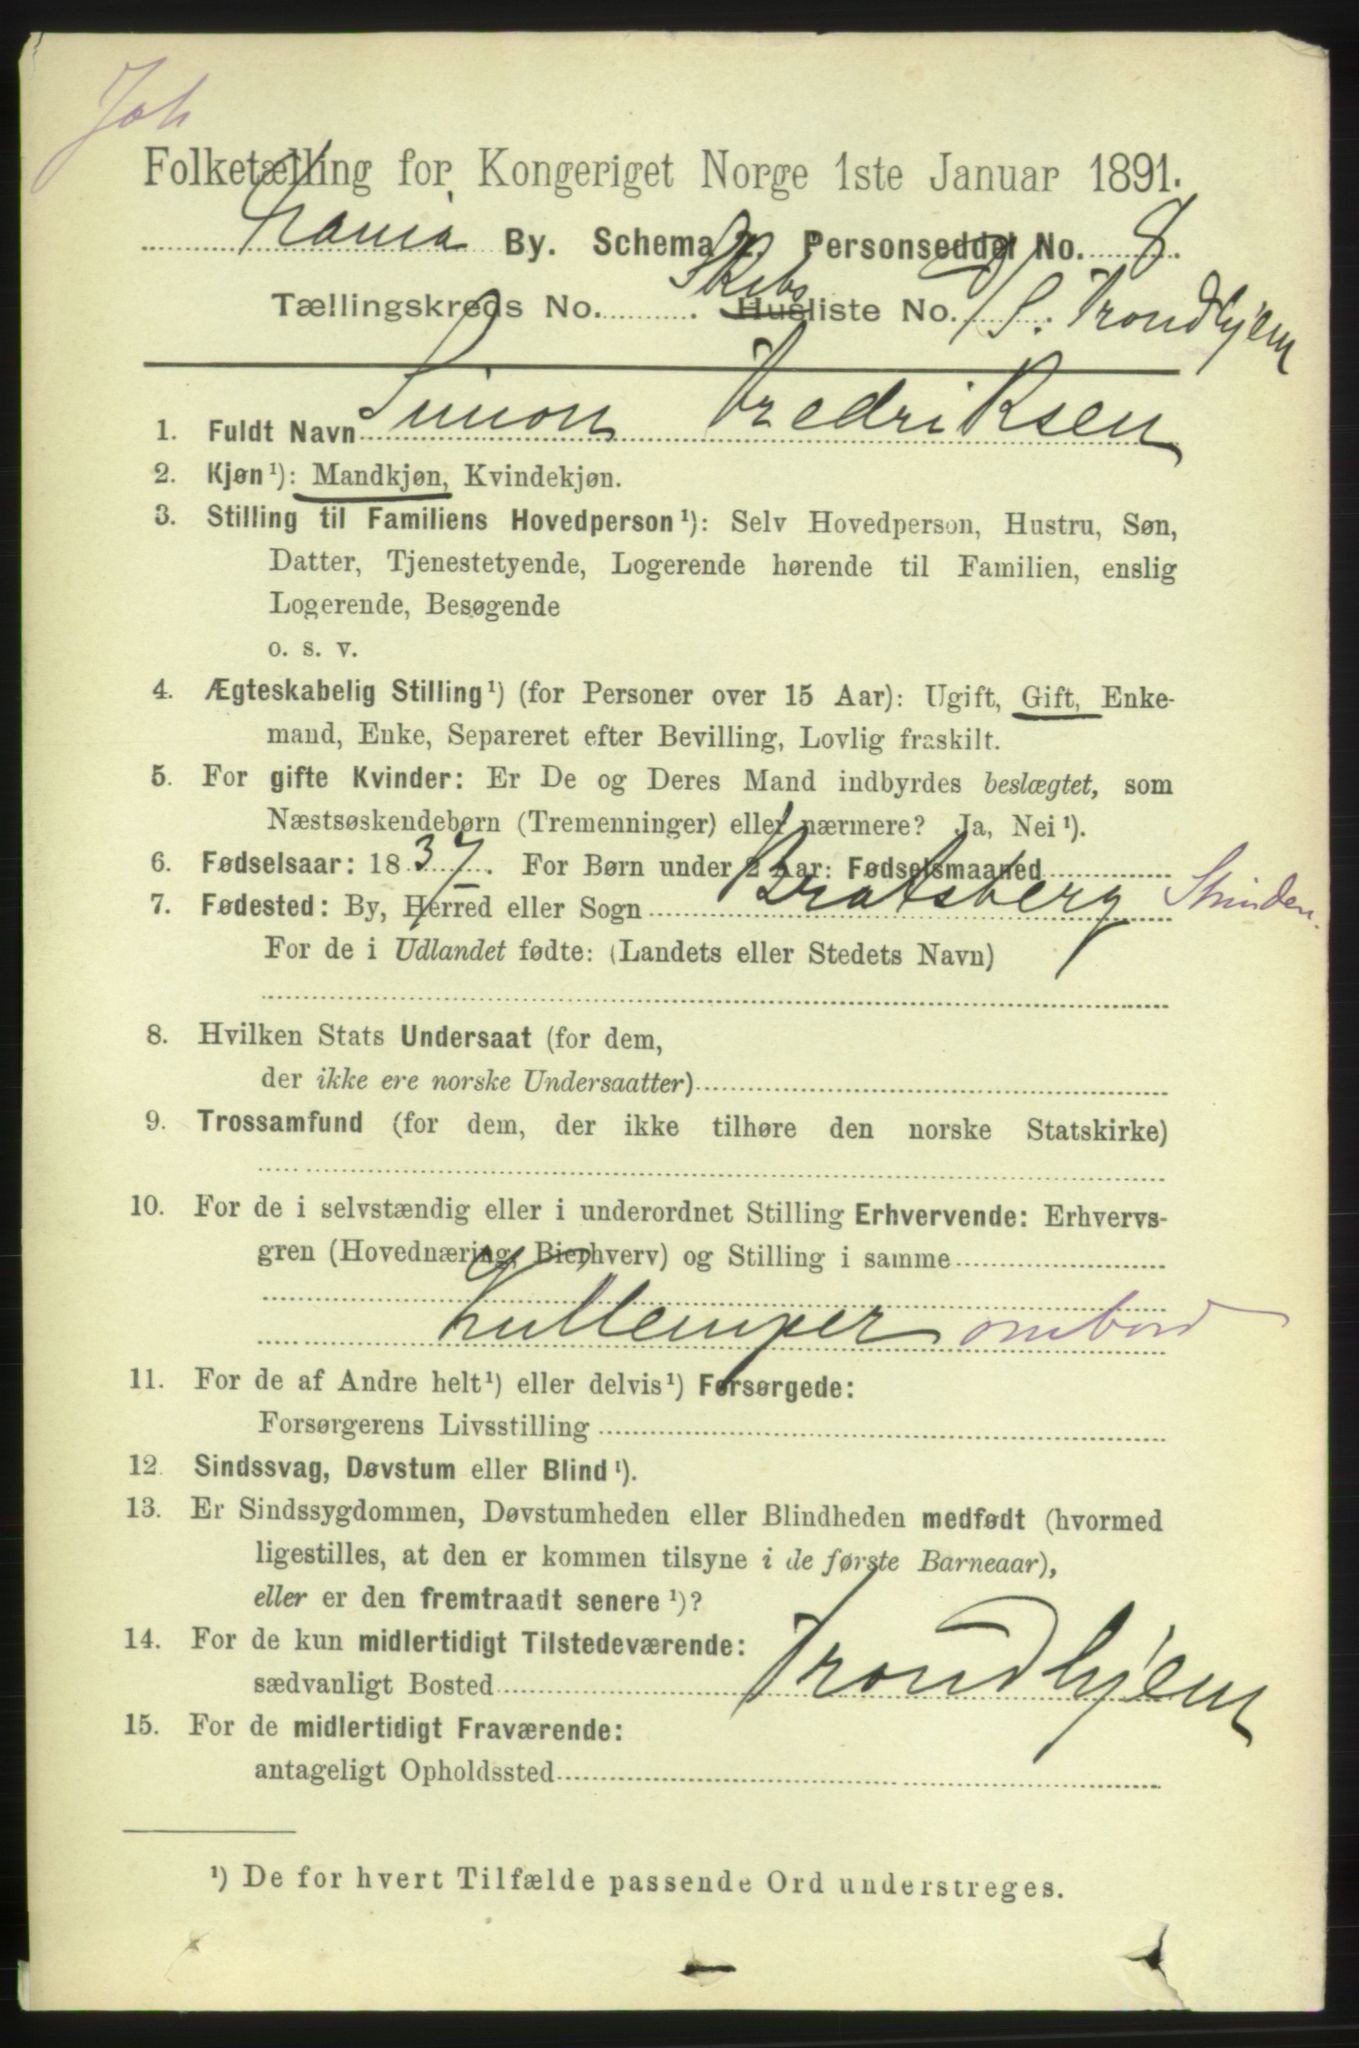 Joh
Folketælling for Kongeriget Norge 1ste Januar 1891.
By. Schema 2. Personseddel No. 8.
Tællingskreds No. Skibs Husliste No. D/S. Trondhjem
1. Fuldt Navn Simon Fredriksen
2. Kjøn ¹): Mandkjøn, Kvindekjøn.
3. Stilling til Familiens Hovedperson ¹): Selv Hovedperson, Hustru, Søn,
Datter, Tjenestetyende, Logerende hørende til Familien, enslig
Logerende, Besøgende
o. s. v.
4. Ægteskabelig Stilling ¹) (for Personer over 15 Aar): Ugift, Gift, Enke-
mand, Enke, Separeret efter Bevilling, Lovlig fraskilt.
5. For gifte Kvinder: Er De og Deres Mand indbyrdes beslægtet, som
Næstsøskendebørn (Tremenninger) eller nærmere? Ja, Nei ¹).
6. Fødselsaar: 1837. For Børn under 2 Aar: Fødselsmaaned
7. Fødested: By, Herred eller Sogn Bratsberg Strinden.
For de i Udlandet fødte: (Landets eller Stedets Navn)
8. Hvilken Stats Undersaat (for dem,
der ikke ere norske Undersaatter)
9. Trossamfund (for dem, der ikke tilhøre den norske Statskirke)
10. For de i selvstændig eller i underordnet Stilling Erhvervende: Erhvervs-
gren (Hovednæring, Bierhverv) og Stilling i samme
Kullemper ombord
11. For de af Andre helt ¹) eller delvis ¹) Forsørgede:
Forsørgerens Livsstilling
12. Sindssvag, Døvstum eller Blind ¹).
13. Er Sindssygdommen, Døvstumheden eller Blindheden medfødt (hvormed
ligestilles, at den er kommen tilsyne i de første Barneaar),
eller er den fremtraadt senere ¹)?
14. For de kun midlertidigt Tilstedeværende:
sædvanligt Bosted Trondhjem
15. For de midlertidigt Fraværende:
antageligt Opholdssted
¹) De for hvert Tilfælde passende Ord understreges.